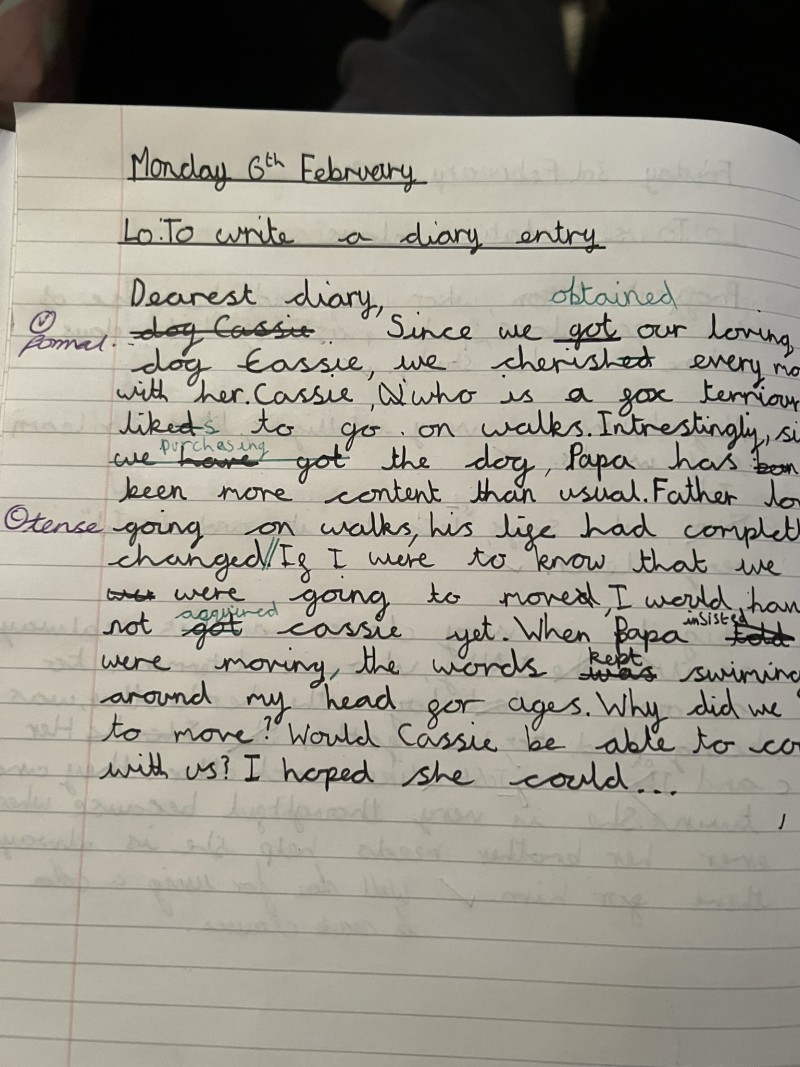 Monday 6th February
Lo: To write a diary entry
Dearest diary,
obtained
formal. dog Cassie. Since we got our loving
dog Cassie, we cherished every mo
with her. Cassie, who is a fox terriour
likeds to go on walks. Intrestingly, si
purchasing
we have got the dog, Papa has been
been more content than usual. Father lo
tense going on walks, his life had complet
changed// If I were to know that we
were going to moved, I would, hav
acquired insisted
not got cassie yet. When Papa told
kept
were moving, the words was swiming
around my head for ages. Why did we
to move? Would Cassie be able to co
with us? I hoped she could...